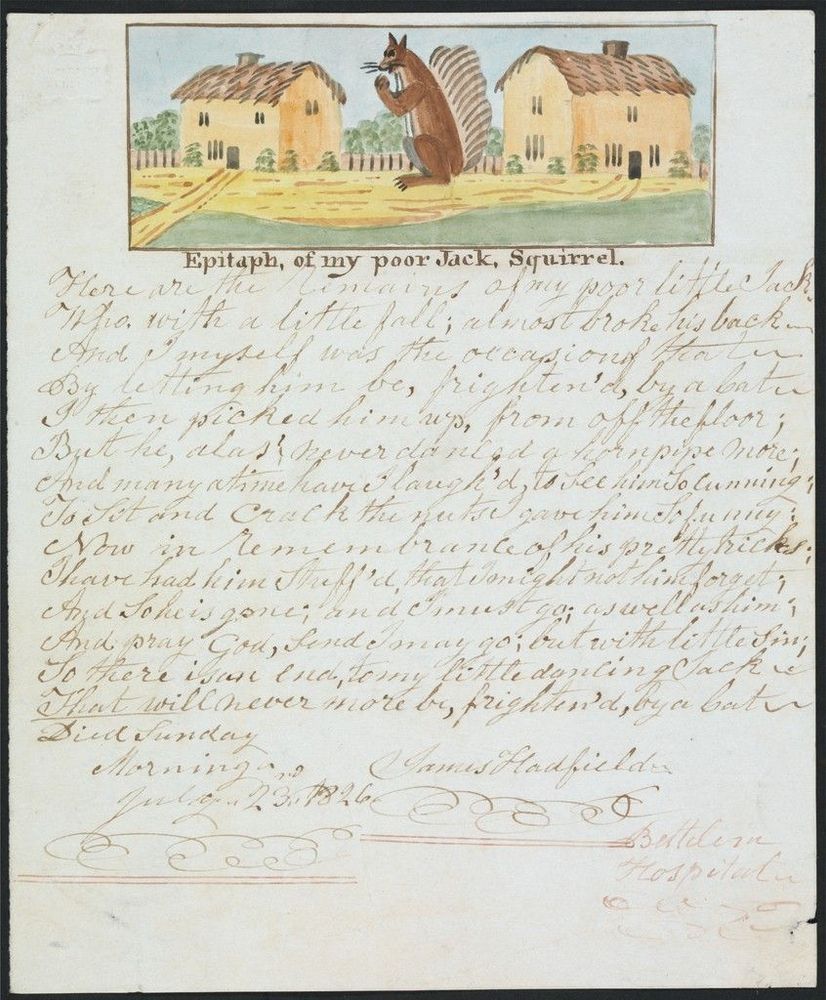 Epitaph, of my poor Jack, Squirrel.
Here are the Remains of my poor little Jack
Who, with a little fall; almost broke his back
And I myself was the occasion of that
By letting him be, frighten'd, by a Cat
I then picked him up, from off the floor;
But he, alas; never danced a hornpipe more;
And many a time have I laugh'd, to see him So Cunning;
To Sit and Crack the nuts I gave him So funny;
Now in remembrance of his pretty tricks;
I have had him Stuff'd, that I might not him forget;
And So he is gone; and I must go; as well as him;
And pray God, Send I may go; but with little Sin;
So there is an end, to my little dancing Jack
That will never more be, frighten'd, by a Cat
Died Sunday
Morning
July 23rd 1826
James Hadfield
Bethlem
Hospital